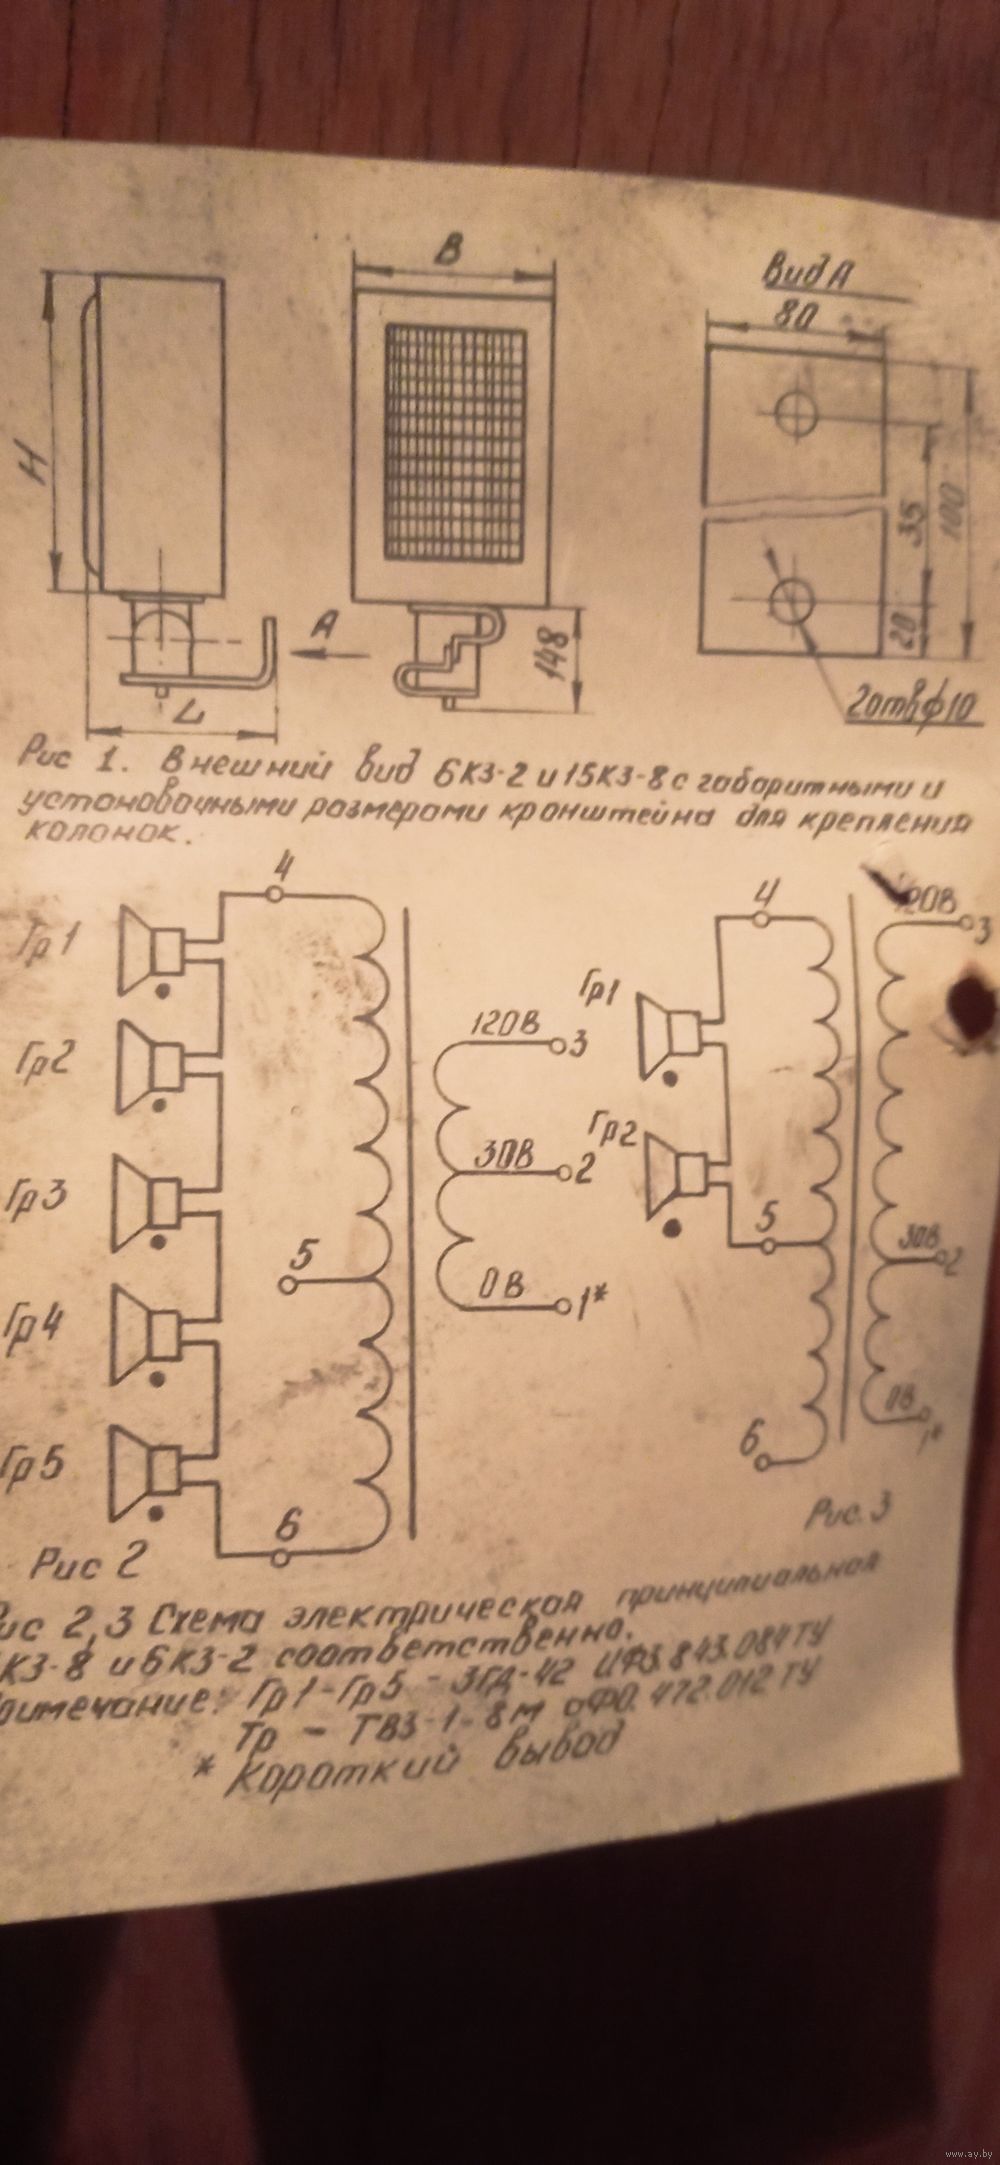 В
Вид А
80
Н
35
100
20
А
148
L
2отв ϕ10
Рис 1. Внешний вид 6КЗ-2 и 15КЗ-8 с габаритными и
установочными размерами кронштейна для крепления
колонок.
4
Гр1
Гр2
Гр3
Гр4
Гр5
5
6
120В
3
30В
2
0В
1*
Рис 2
4
Гр1
Гр2
5
6
120В
3
30В
2
0В
1*
Рис. 3
Рис 2,3 Схема электрическая принципиальная
КЗ-8 и 6КЗ-2 соответственно.
Примечание: Гр1-Гр5 - 3ГД-42 ИФЗ.843.084ТУ
Тр - ТВЗ-1-8м оФ0.472.012ТУ
* Короткий вывод
www.ay.by